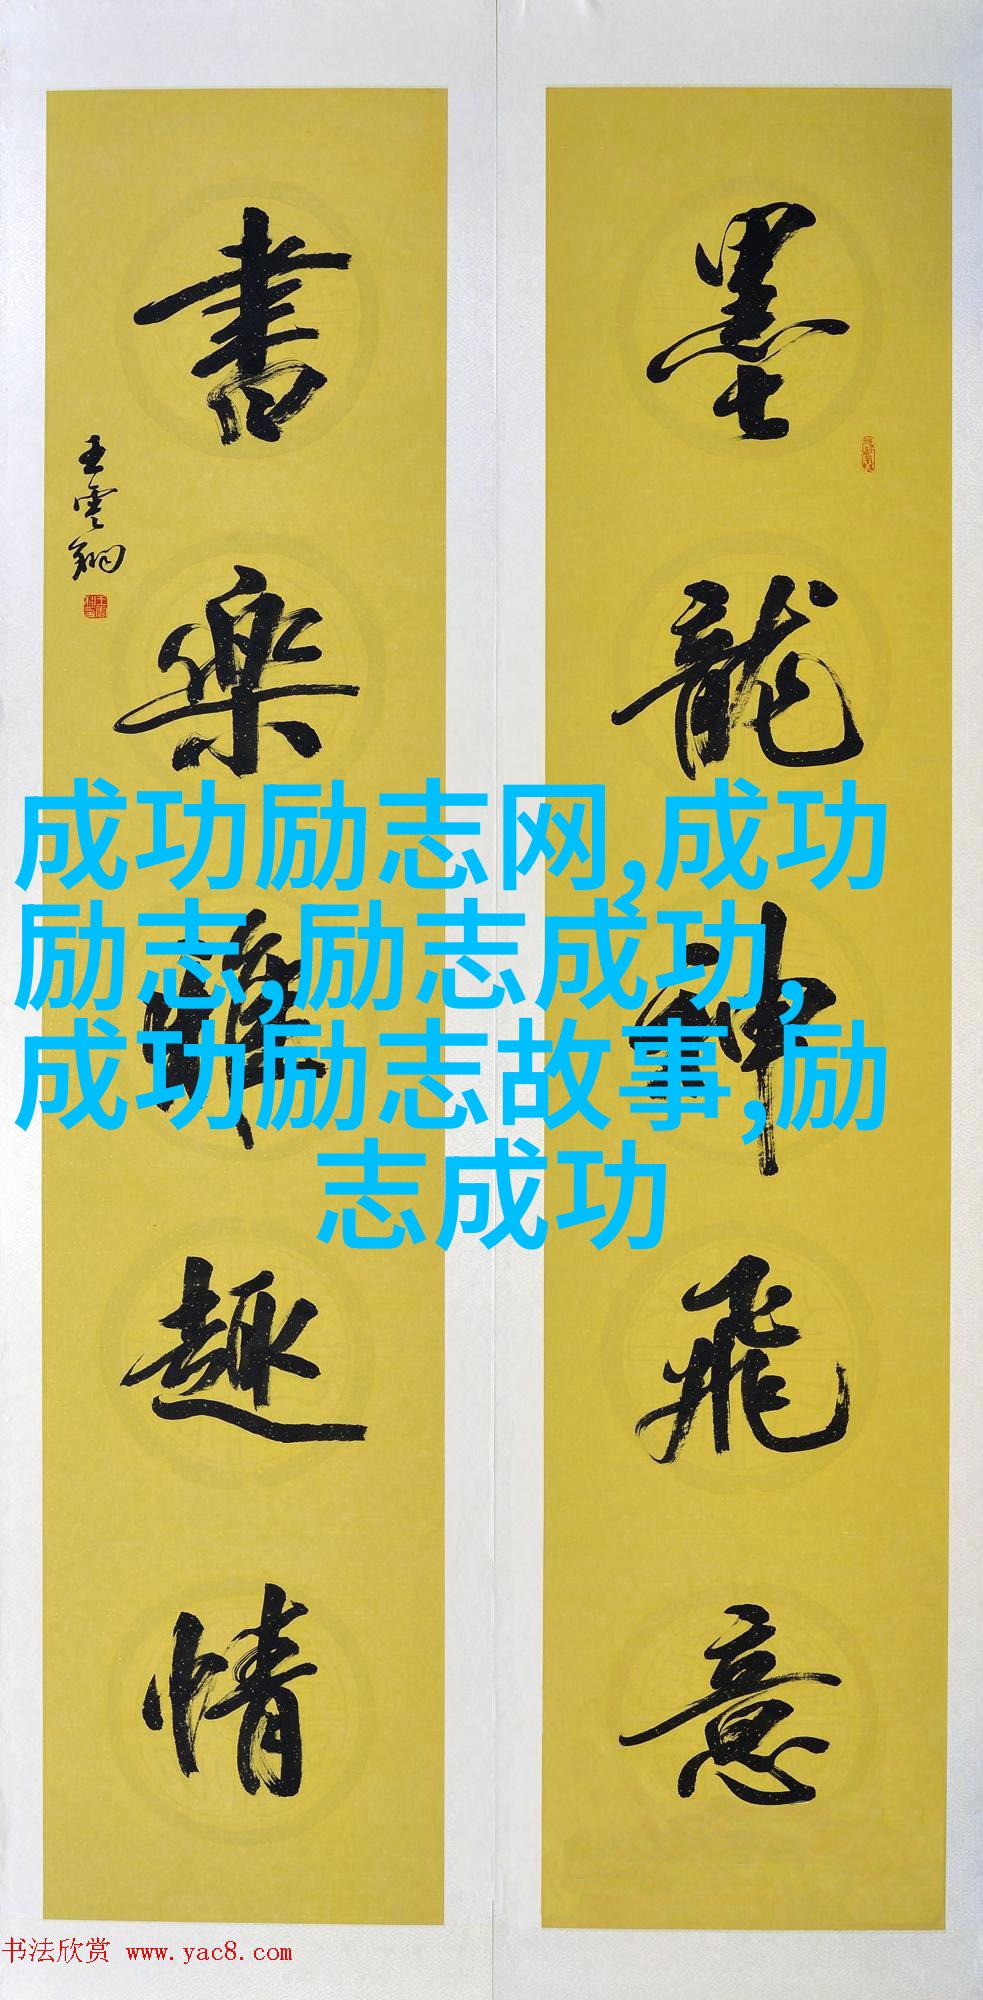 墨龍神飛意
書樂雅趣情
王雲翔
成功励志网,成功
励志,励志成功,
成功励志故事,励
志成功
书法欣赏 www.yac8.com